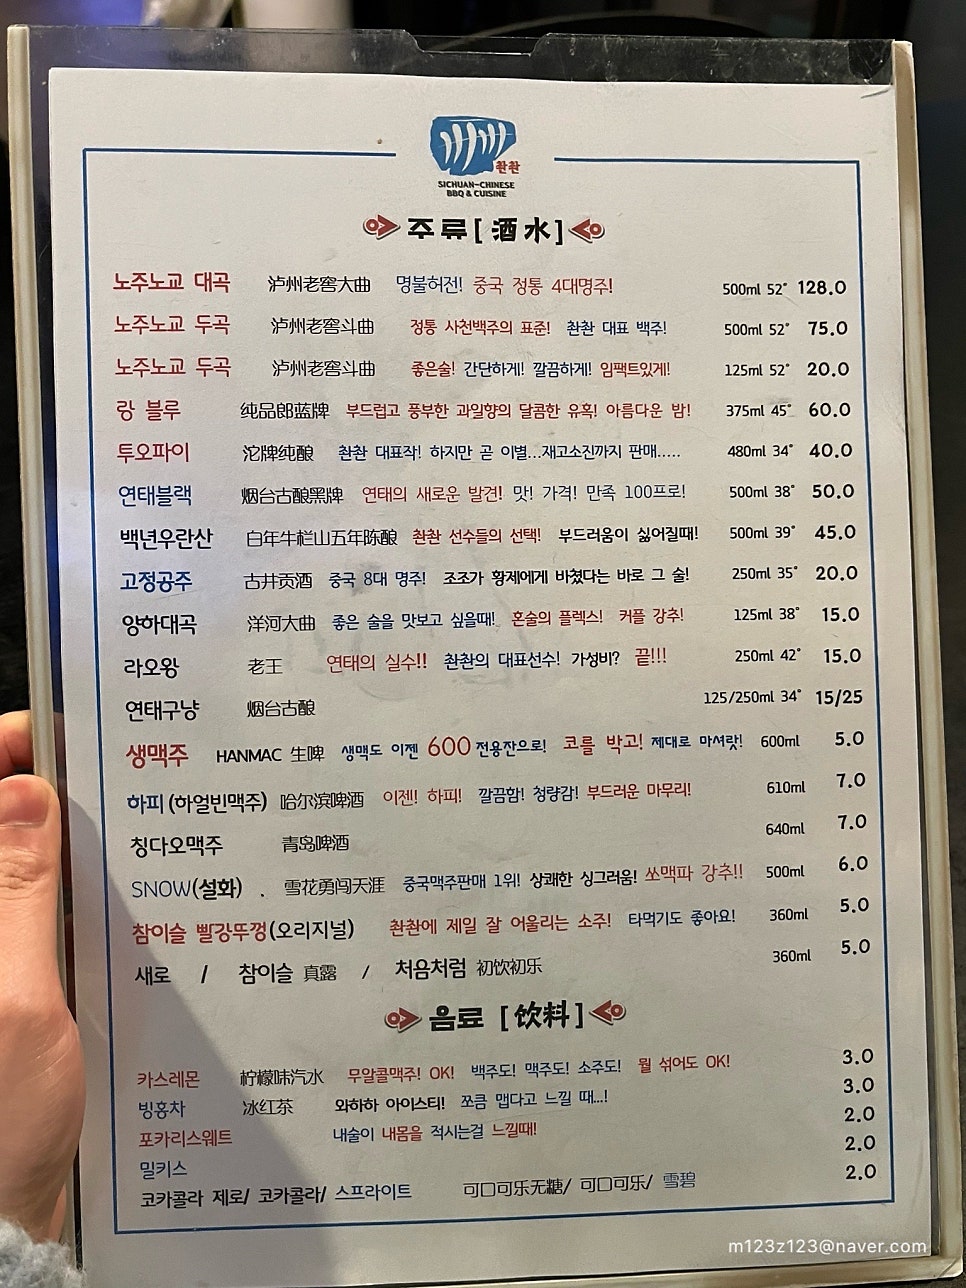 촨촨
SICHUAN-CHINESE
BBQ & CUISINE
주류 [ 酒水 ]
노주노교 대곡 泸州老窖大曲 명불허전! 중국 정통 4대명주! 500ml 52° 128.0
노주노교 두곡 泸州老窖斗曲 정통 사천백주의 표준! 촨촨 대표 백주! 500ml 52° 75.0
노주노교 두곡 泸州老窖斗曲 좋은술! 간단하게! 깔끔하게! 임팩트있게! 125ml 52° 20.0
랑 블루 纯品郎蓝牌 부드럽고 풍부한 과일향의 달콤한 유혹! 아름다운 밤! 375ml 45° 60.0
투오파이 沱牌纯酿 촨촨 대표작! 하지만 곧 이별...재고소진까지 판매..... 480ml 34° 40.0
연태블랙 烟台古酿黑牌 연태의 새로운 발견! 맛! 가격! 만족 100프로! 500ml 38° 50.0
백년우란산 白年牛栏山五年陈酿 촨촨 선수들의 선택! 부드러움이 싫어질때! 500ml 39° 45.0
고정공주 古井贡酒 중국 8대 명주! 조조가 황제에게 바쳤다는 바로 그 술! 250ml 35° 20.0
양하대곡 洋河大曲 좋은 술을 맛보고 싶을때! 혼술의 플렉스! 커플 강추! 125ml 38° 15.0
라오왕 老王 연태의 실수!! 촨촨의 대표선수! 가성비? 끝!!! 250ml 42° 15.0
연태구냥 烟台古酿 125/250ml 34° 15/25
생맥주 HANMAC 生啤 생맥도 이젠 600 전용잔으로! 코를 박고! 제대로 마셔랏! 600ml 5.0
하피 (하얼빈맥주) 哈尔滨啤酒 이젠! 하피! 깔끔함! 청량감! 부드러운 마무리! 610ml 7.0
칭다오맥주 青岛啤酒 640ml 7.0
SNOW(설화) . 雪花勇闯天涯 중국맥주판매 1위! 상쾌한 싱그러움! 쏘맥파 강추!! 500ml 6.0
참이슬 빨강뚜껑(오리지널) 촨촨에 제일 잘 어울리는 소주! 타먹기도 좋아요! 360ml 5.0
새로 / 참이슬 真露 / 처음처럼 初饮初乐 360ml 5.0
음료 [ 饮料 ]
카스레몬 柠檬味汽水 무알콜맥주! OK! 백주도! 맥주도! 소주도! 뭘 섞어도 OK! 3.0
빙홍차 冰红茶 와하하 아이스티! 쪼큼 맵다고 느낄 때...! 3.0
포카리스웨트 내술이 내몸을 적시는걸 느낄때! 2.0
밀키스 2.0
코카콜라 제로/ 코카콜라/ 스프라이트 可口可乐无糖/ 可口可乐/ 雪碧 2.0
m123z123@naver.com